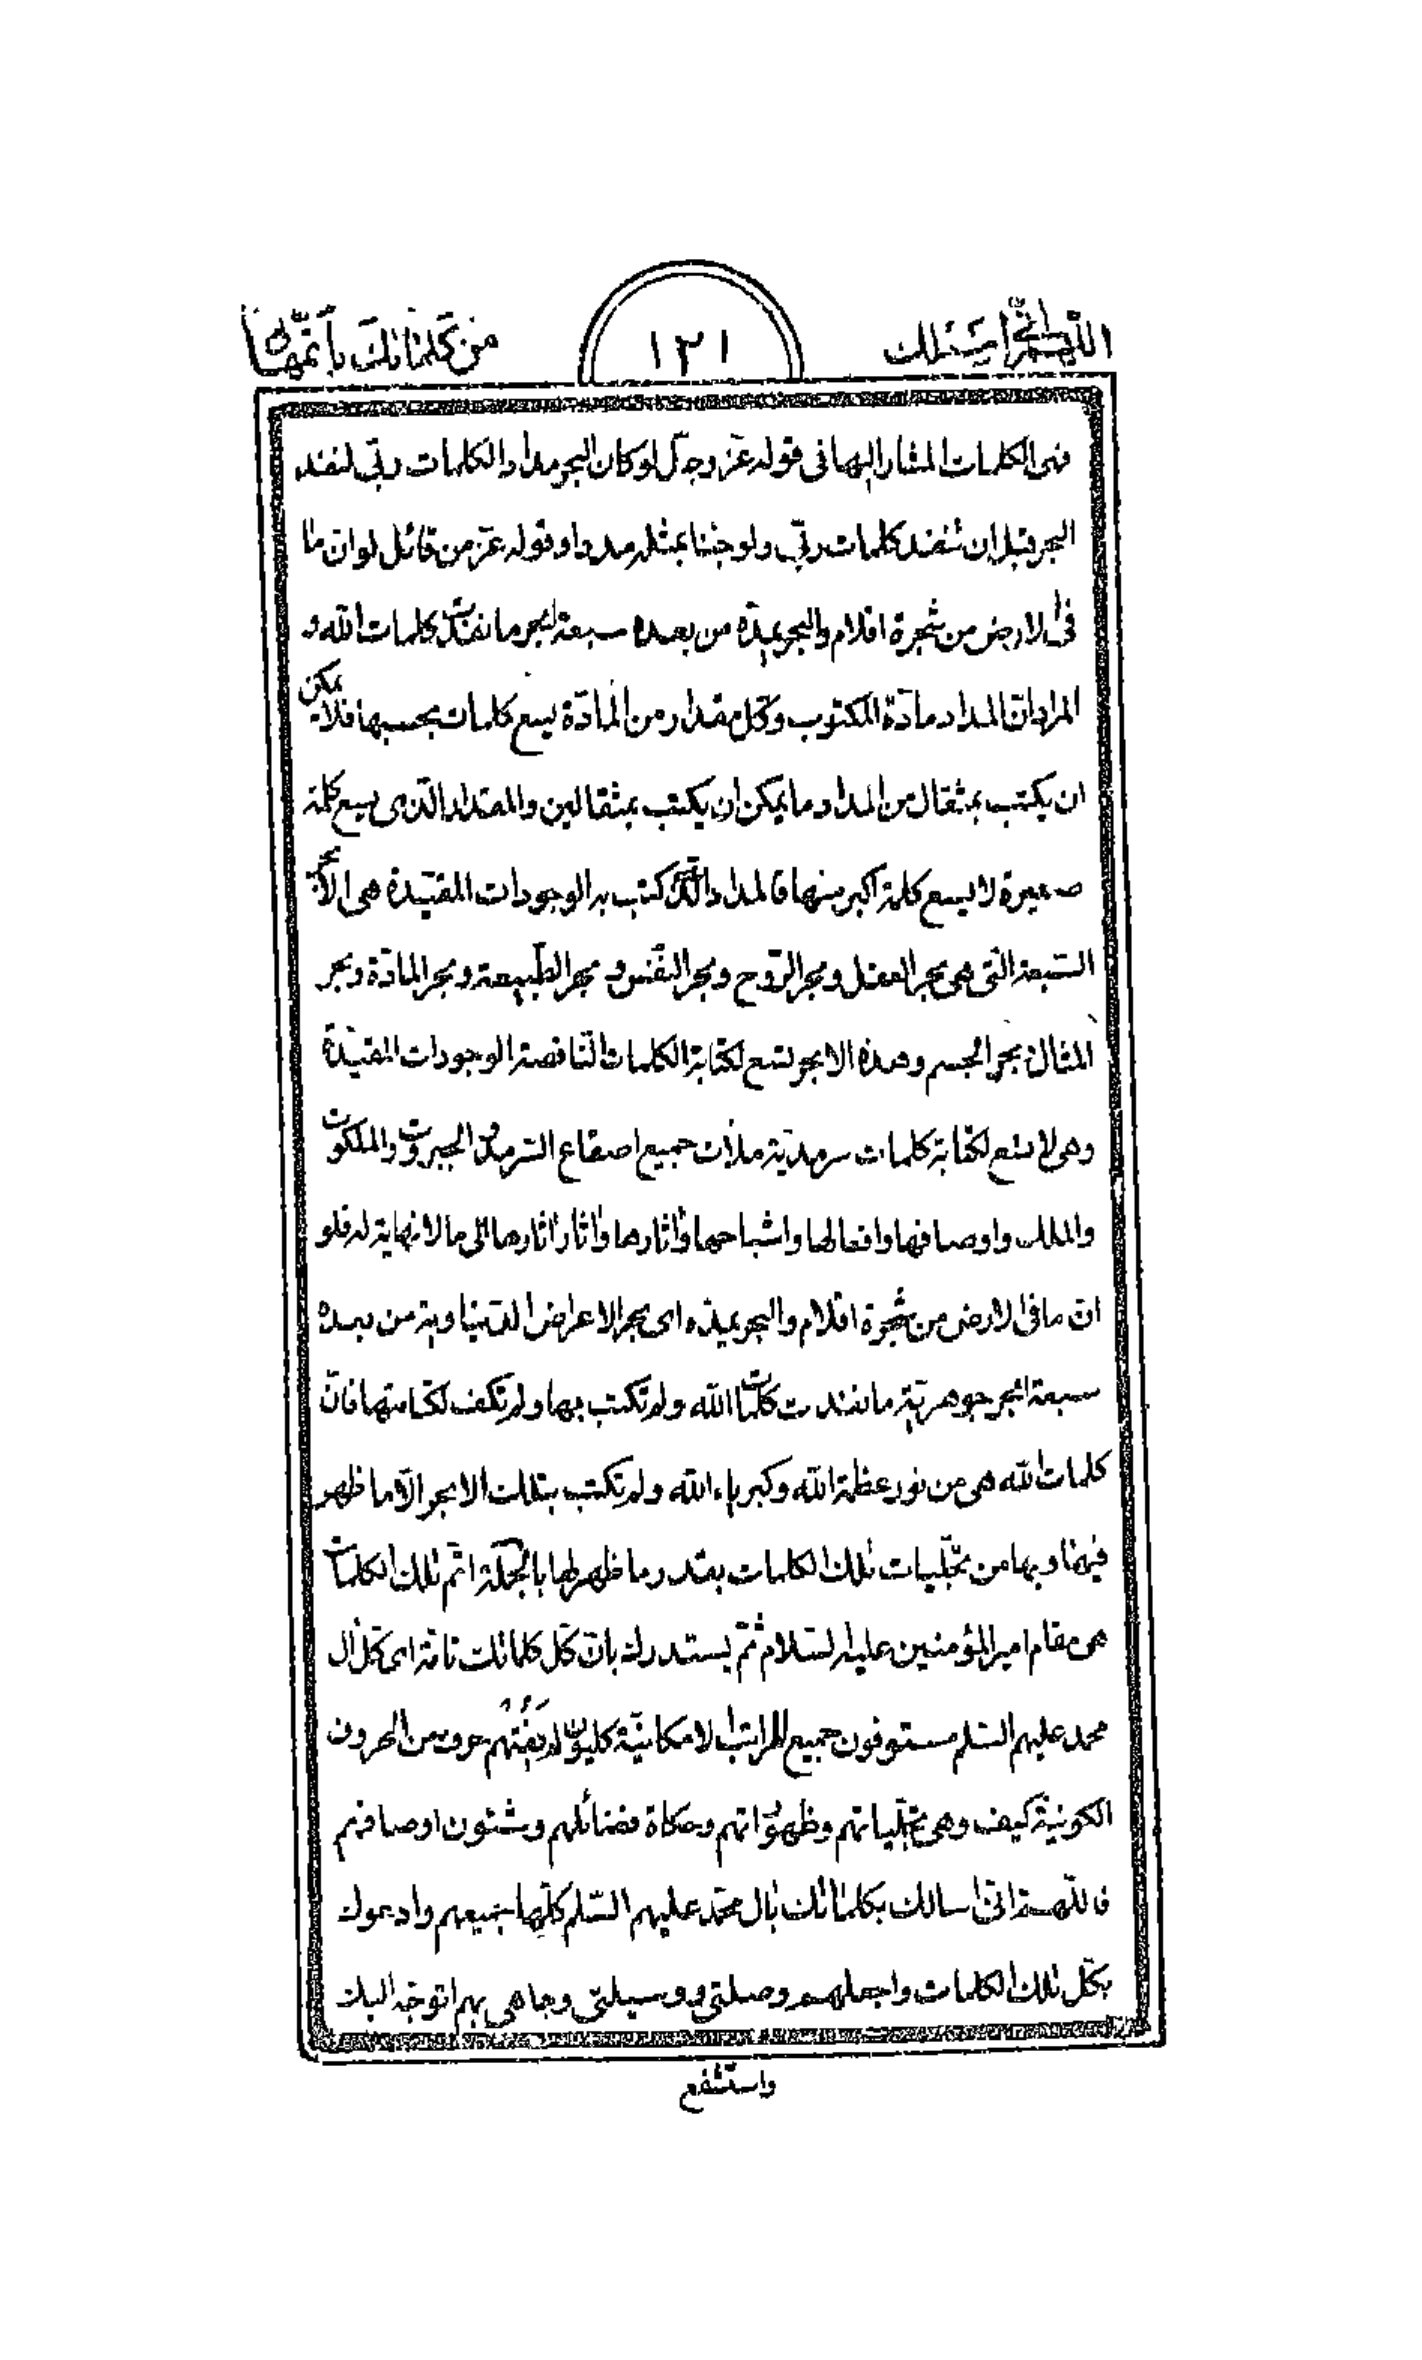 اللّهمّ انّى اسئلك
١٢١
من كلماتك باتمّها
فهى الكلمات المشار اليها فى قوله عزّ وجلّ لو كان البحر مدادا لكلمات ربّى لنفد
البحر قبل ان تنفد كلمات ربّى ولو جئنا بمثله مددا وقوله عزّ من قائل لو انّ ما
فى الارض من شجرة اقلام والبحر يمدّه من بعده سبعة ابحر ما نفدت كلمات الله و
المراد انّ المداد مادّة المكتوب وكلّ مقدار من المادّة يسع كلمات بحسبها فلا يمكن
ان يكتب بمثقال من المداد ما يمكن ان يكتب بمثقالين والمقدار الّذى يسع كلمة
صغيرة لا يسع كلمة اكبر منها فالمداد الّذى كتب به الوجودات المقيّدة هى الابحر
السّبعة الّتى هى بحر العقل وبحر الرّوح وبحر النّفس و بحر الطّبيعة وبحر المادّة وبحر
المثال وبحر الجسم وهذه الابحر تسع لكتابة الكلمات النّاقصة الوجودات المقيّدة
وهى لا تسع لكتابة كلمات سرمديّة ملأت جميع اصقاع السّرمد والجبروت والملكوت
والملك واوصافها وافعالها واشباحها واثارها واثار اثارها الى ما لا نهاية له فلو
انّ ما فى الارض من شجرة اقلام والبحر يمدّه اى بحر الاعراض الدّنياوية من بعده
سبعة ابحر جوهريّة ما نفدت كلمات الله ولم تكتب بها ولم تكف لكتابتها فانّ
كلمات الله هى من نور عظمة الله وكبرياء الله ولم تكتب بتلك الابحر الّا ما ظهر
فيها وبها من تجلّيات تلك الكلمات بقدر ما ظهر لها بالجملة اتمّ تلك الكلمات
هى مقام امير المؤمنين عليه السّلام ثمّ يستدرك بانّ كلّ كلماتك تامّة اى كلّ ال
محمد عليهم السّلم مستوفون جميع المراتب الامكانيّة كليّون لم يفتهم حرف من الحروف
الكونيّة كيف وهى تجلّياتهم وظهوراتهم وحكاة فضائلهم وشئون اوصافهم
فاللّهمّ انّى اسالك بكلماتك بال محمّد عليهم السّلم كلّها جميعهم وادعوك
بكلّ تلك الكلمات واجعلهم وصلتى و وسيلتى وجاهى بهم اتوجّه اليك
واستشفع